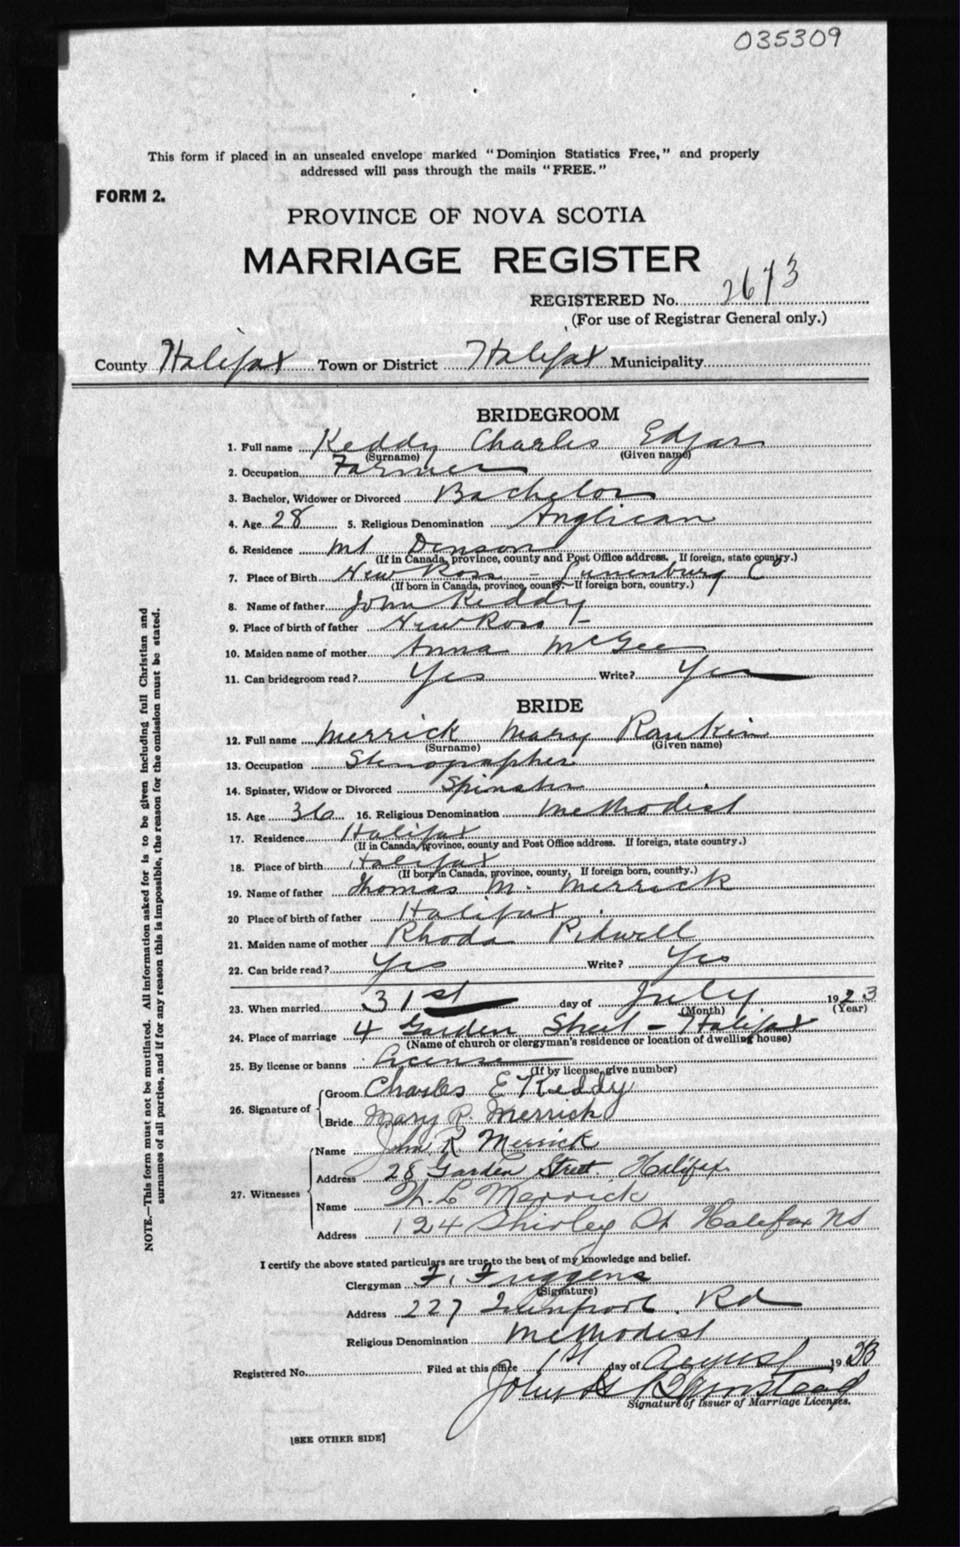 035309
This form if placed in an unsealed envelope marked "Dominion Statistics Free," and properly
addressed will pass through the mails "FREE."
FORM 2.
PROVINCE OF NOVA SCOTIA
MARRIAGE REGISTER
REGISTERED No. 2673
(For use of Registrar General only.)
County Halifax Town or District Halifax Municipality
BRIDEGROOM
1. Full name Keddy Charles Edgar
(Surname) (Given name)
2. Occupation Farmer
3. Bachelor, Widower or Divorced Bachelor
4. Age 28 5. Religious Denomination Anglican
6. Residence Mt Denson
(If in Canada, province, county and Post Office address. If foreign, state country.)
7. Place of Birth New Ross - Lunenburg C
(If born in Canada, province, county. If foreign born, country.)
8. Name of father John Keddy
9. Place of birth of father New Ross
10. Maiden name of mother Anna McGee
11. Can bridegroom read? Yes Write? Yes
BRIDE
12. Full name Merrick Mary Rankin
(Surname) (Given name)
13. Occupation Stenographer
14. Spinster, Widow or Divorced Spinster
15. Age 36 16. Religious Denomination Methodist
17. Residence Halifax
(If in Canada, province, county and Post Office address. If foreign, state country.)
18. Place of birth Halifax
(If born in Canada, province, county, If foreign born, country.)
19. Name of father Thomas M. Merrick
20 Place of birth of father Halifax
21. Maiden name of mother Rhoda Pidwell
22. Can bride read? Yes Write? Yes
23. When married 31st day of July 1923
(Month) (Year)
24. Place of marriage 4 Garden Street - Halifax
(Name of church or clergyman's residence or location of dwelling house)
25. By license or banns License
(If by license, give number)
26. Signature of
Groom Charles E Keddy
Bride Mary R. Merrick
27. Witnesses
Name John R Merrick
Address 28 Garden Street Halifax
Name L Merrick
Address 124 Shirley St Halifax NS
I certify the above stated particulars are true to the best of my knowledge and belief.
Clergyman F. Friggens
(Signature)
Address 227 Rd
Religious Denomination Methodist
Registered No. Filed at this office 1st day of August 1923
John
Signature of Issuer of Marriage Licenses.
[SEE OTHER SIDE]
NOTE.—This form must not be mutilated. All information asked for is to be given including full Christian and
surnames of all parties, and if for any reason this is impossible, the reason for the omission must be stated.